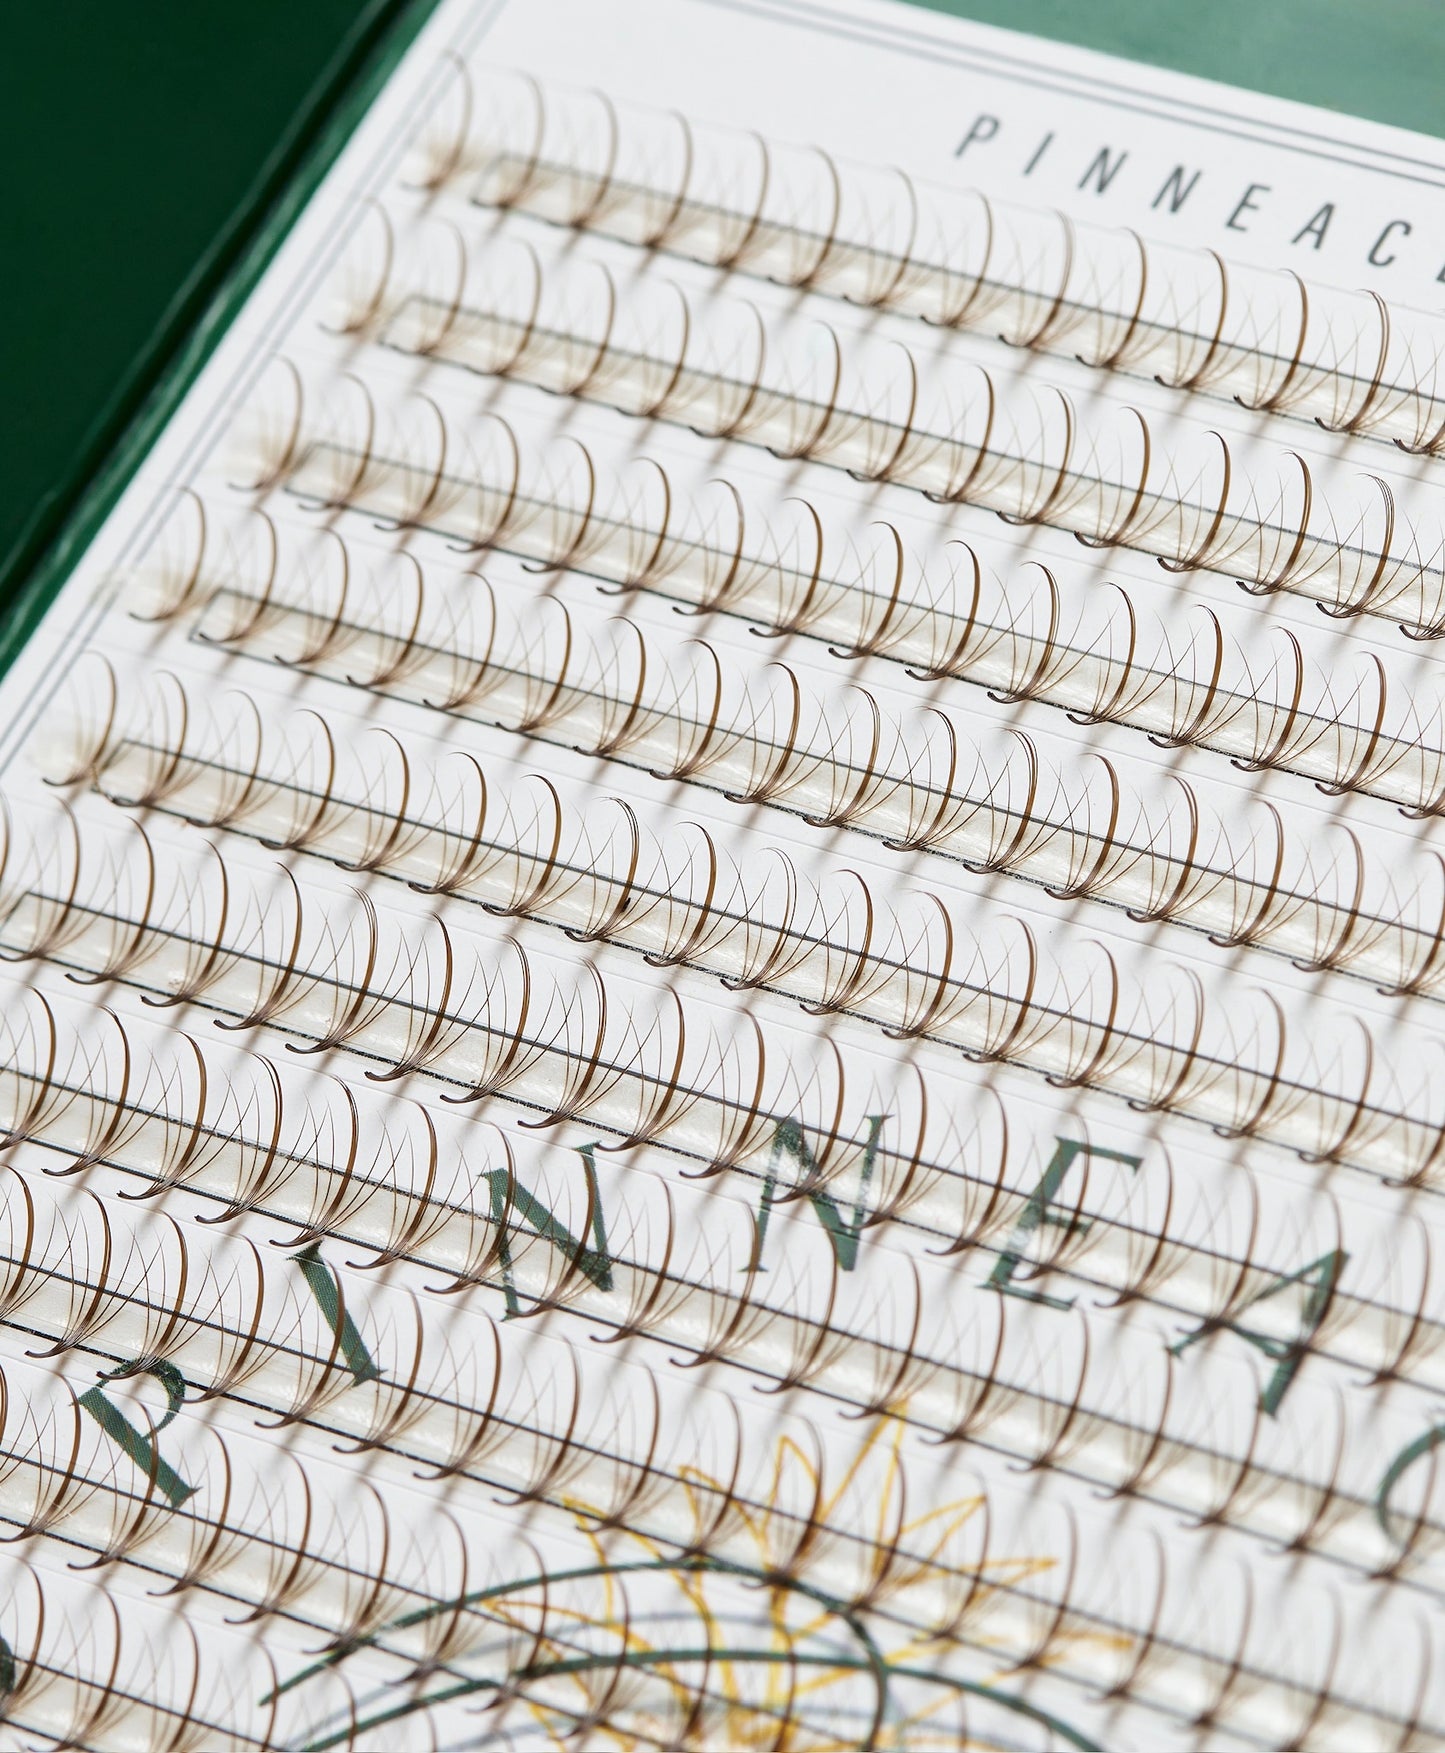 PINNEAC
PINNEA